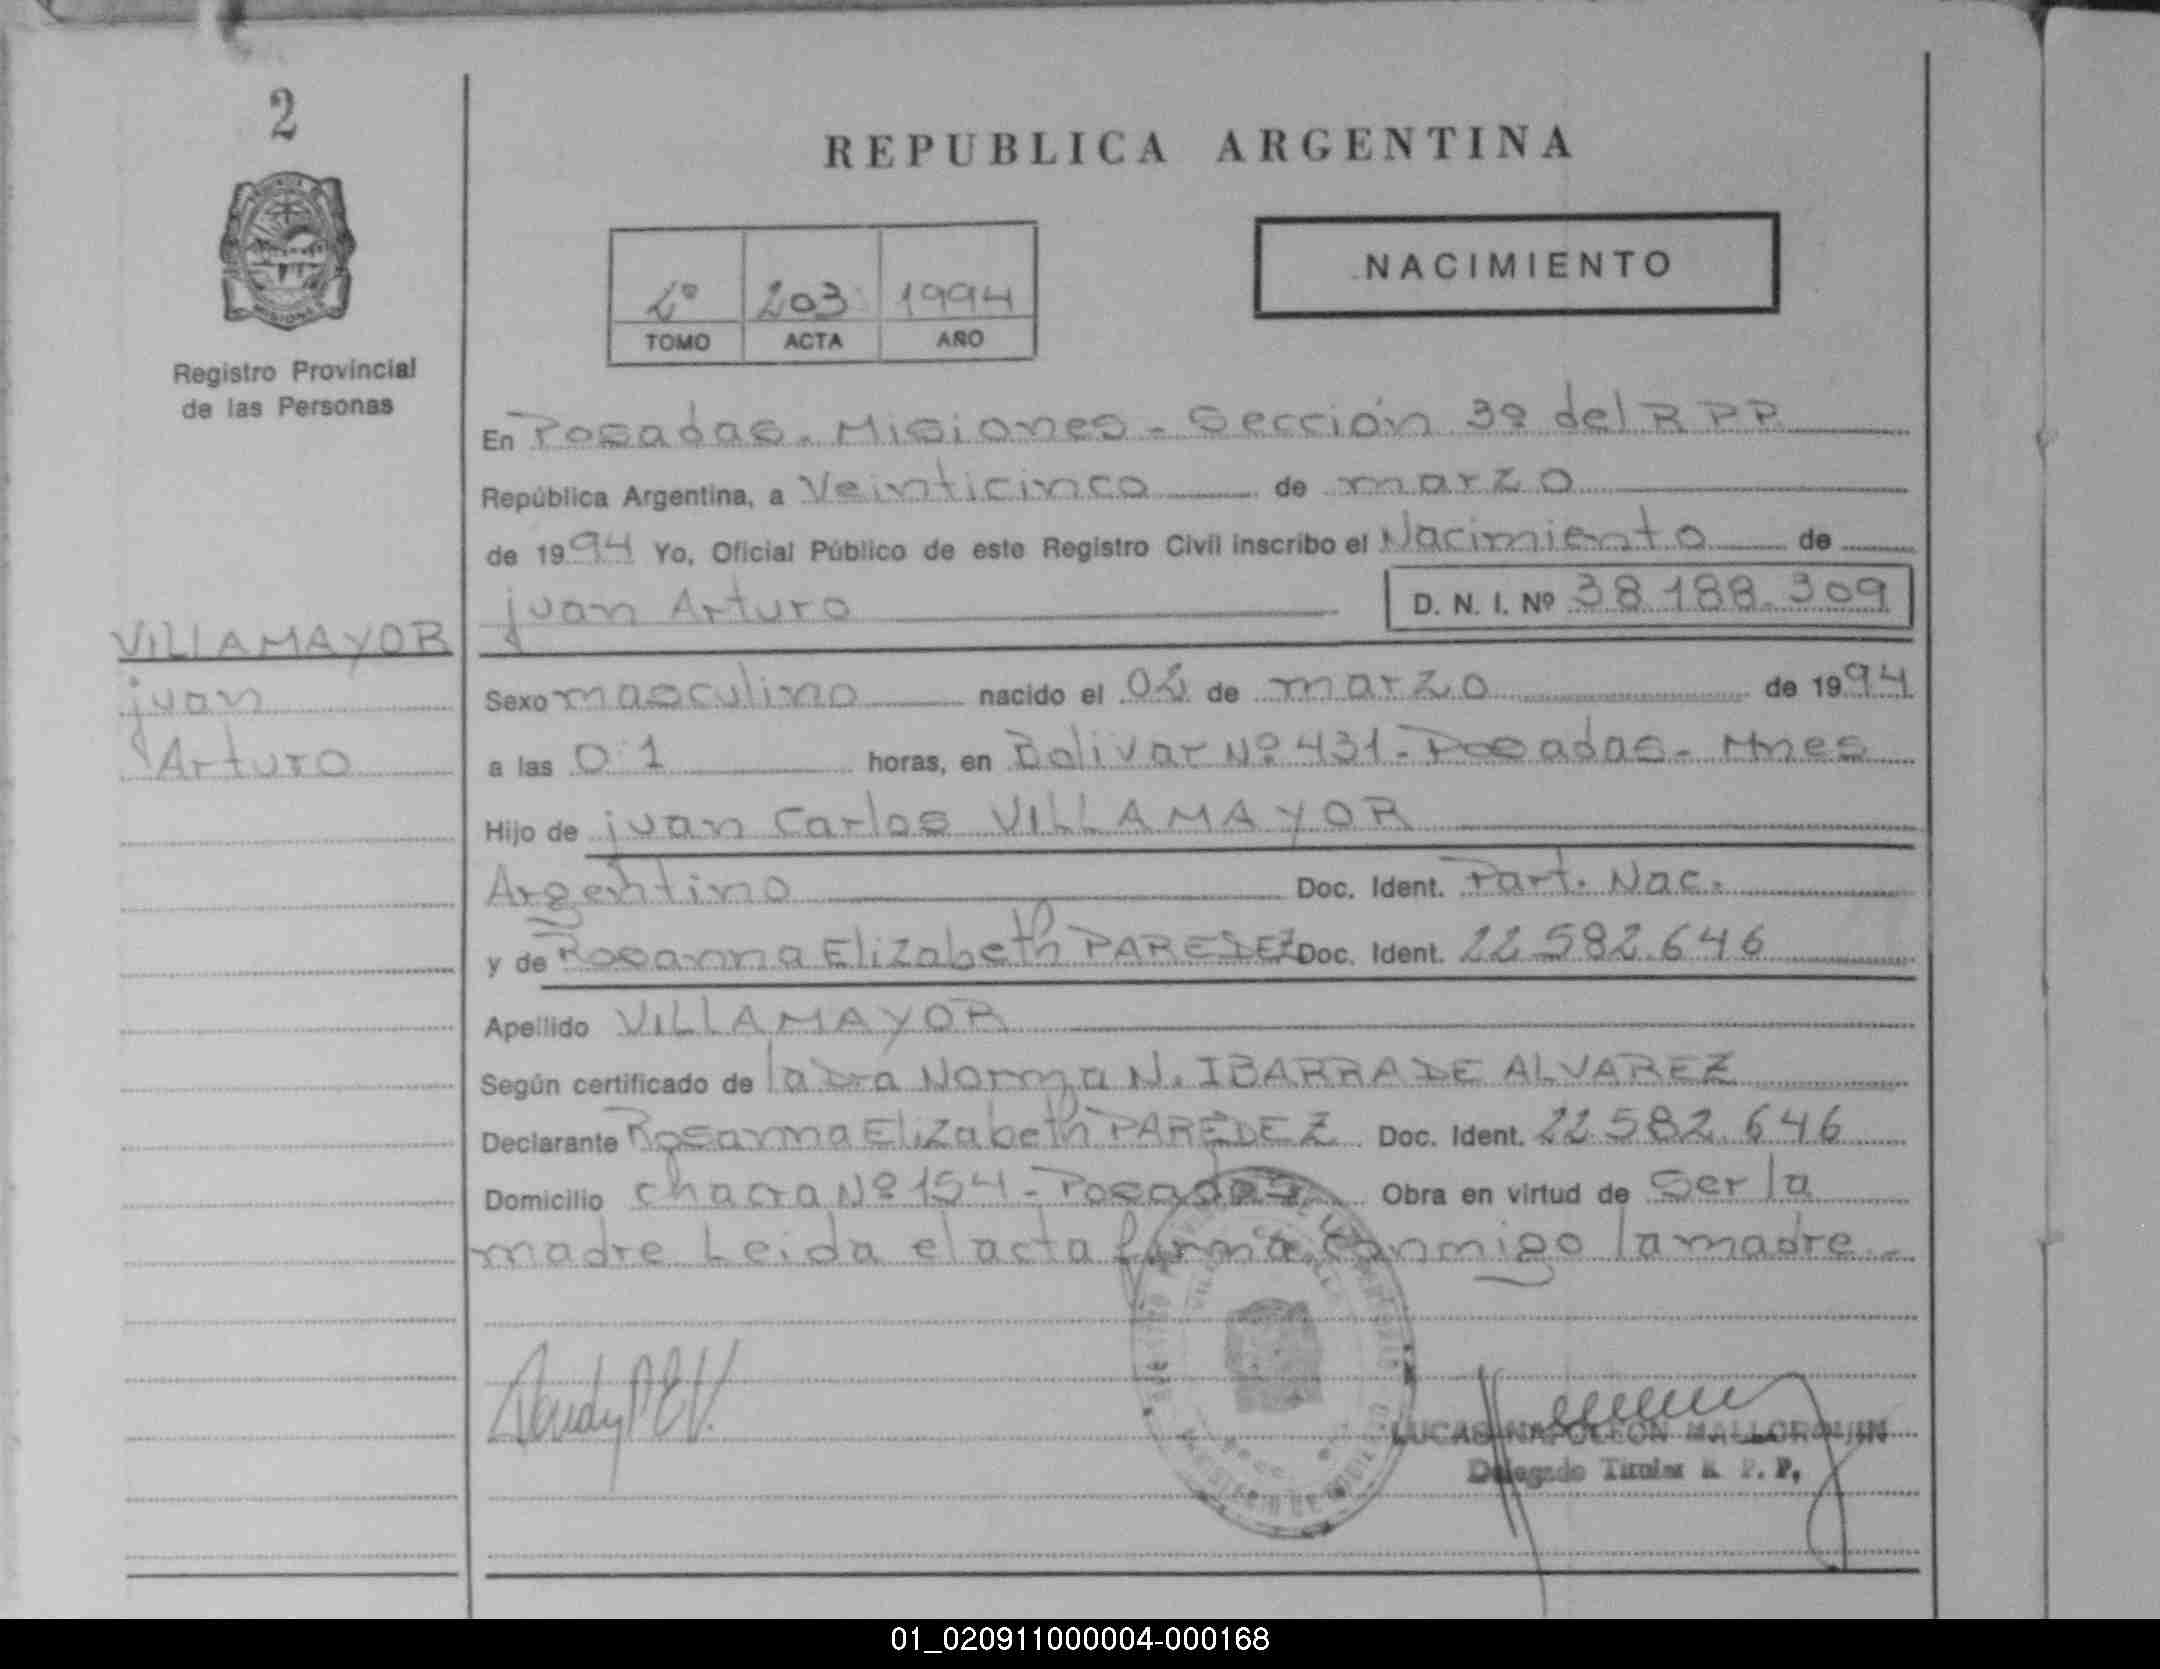 2
REPUBLICA ARGENTINA
NACIMIENTO
2º 203 1994
TOMO ACTA AÑO
Registro Provincial
de las Personas
En Posadas - Misiones - Sección 3º del R P P.
República Argentina, a Veinticinco de marzo
de 1994 Yo, Oficial Público de este Registro Civil inscribo el Nacimiento de
juan Arturo D. N. I. Nº 38.188.309
VILLAMAYOR
juan
Arturo
Sexo masculino nacido el 02 de marzo de 1994
a las 01 horas, en Bolivar Nº 431 - Posadas - Mnes
Hijo de juan Carlos VILLAMAYOR
Argentino Doc. Ident. Part. Nac.
y de Rosanna Elizabeth PAREDEZ Doc. Ident. 22.582.646
Apellido VILLAMAYOR
Según certificado de la Dra Norma N. IBARRA DE ALVAREZ
Declarante Rosanna Elizabeth PAREDEZ Doc. Ident. 22.582.646
Domicilio chacra Nº 154 - Posadas Obra en virtud de Ser la
madre Leida el acta firma conmigo la madre.-
LUCAS NAPOLEON MALLORQUIN
Delegado Titular R. P. P.
01_020911000004-000168